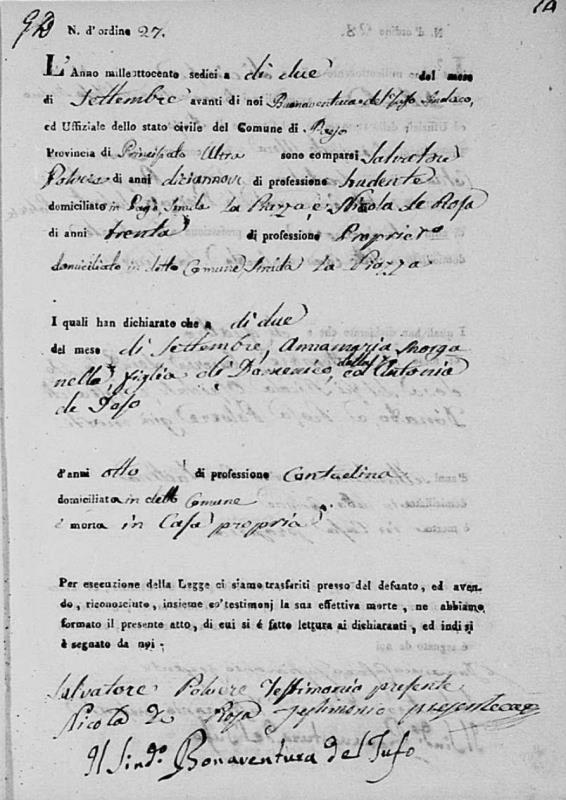 92
N. d'ordine 27.
L'Anno milleottocento sedici a di due del mese
di Settembre avanti di noi Buonaventura del Tufo Sindaco,
ed Uffiziale dello stato civile del Comune di
Provincia di Principato Ultra sono comparsi Salvatore
Polvere di anni diciannove di professione studente
domiciliato in Strada La Piazza, e Nicola de Rosa
di anni trenta di professione Propriet.o
domiciliato in detto Comune Strada La Piazza
I quali han dichiarato che a di due
del mese di Settembre, Annamaria
nella, figlia di Domenico, ed Antonia
de
d'anni otto di professione Contadina
domiciliata in detto Comune
è morta in Casa propria.
Per esecuzione della Legge ci siamo trasferiti presso del defunto, ed aven-
do, riconosciuto, insieme co' testimonj la sua effettiva morte, ne abbiamo
formato il presente atto, di cui si é fatto lettura ai dichiaranti, ed indi si
è segnato da noi.
Salvatore Polvere Testimonio presente
Nicola de Rosa Testimonio presente
Il Sind.o Bonaventura del Tufo